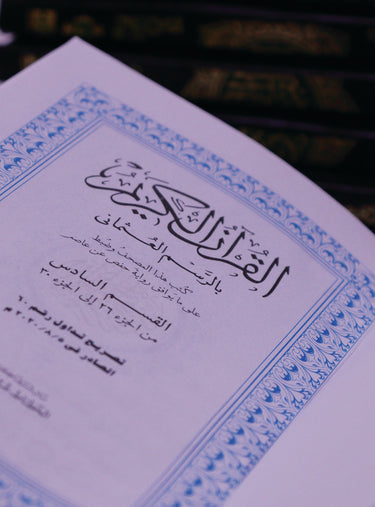 القرآن الكريم
بالرسم العثماني
كُتِب هذا المصحف وضُبط
على ما يوافق رواية حفص عن عاصم
القسم السادس
من الجزء ٢٦ إلى الجزء ٣٠
تصريح تداول رقم ٦٠
الصادر في ٢٠٢٠/٨/٥ م